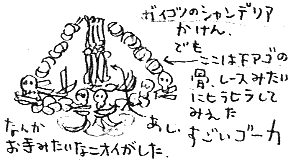 ガイコツのシャンデリア
かけん。
でも
ここは下アゴの
骨、レースみたい
にヒラヒラして
みえた
あし、すごいゴーカ
なんか
お寺みたいなニオイがした。